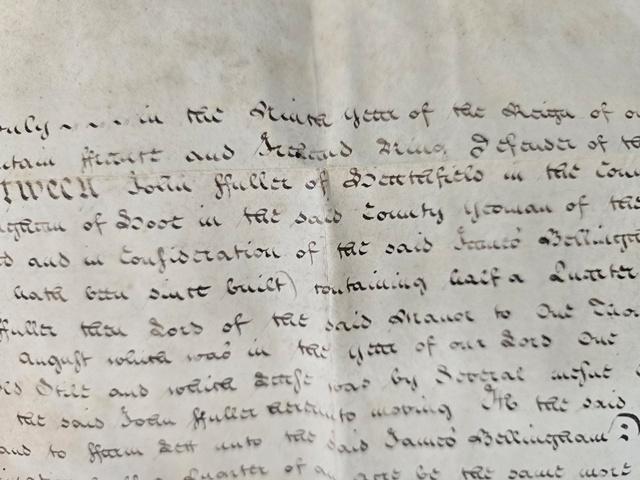 in the Ninth year of the Reign of
France and Ireland King Defender of
John ffuller of Heathfield in the
of in the said County yeoman of the
and in Consideration of the said James
hath been since built) containing half a Quarter
ffuller then Lord of the said Manor to One
august which was in the year of our Lord One
Stile and which Lease was by Several mesne
the said John ffuller hereunto moving the said
and to ffarm Lett unto the said James Bellingham
a Quarter of an acre be the same more